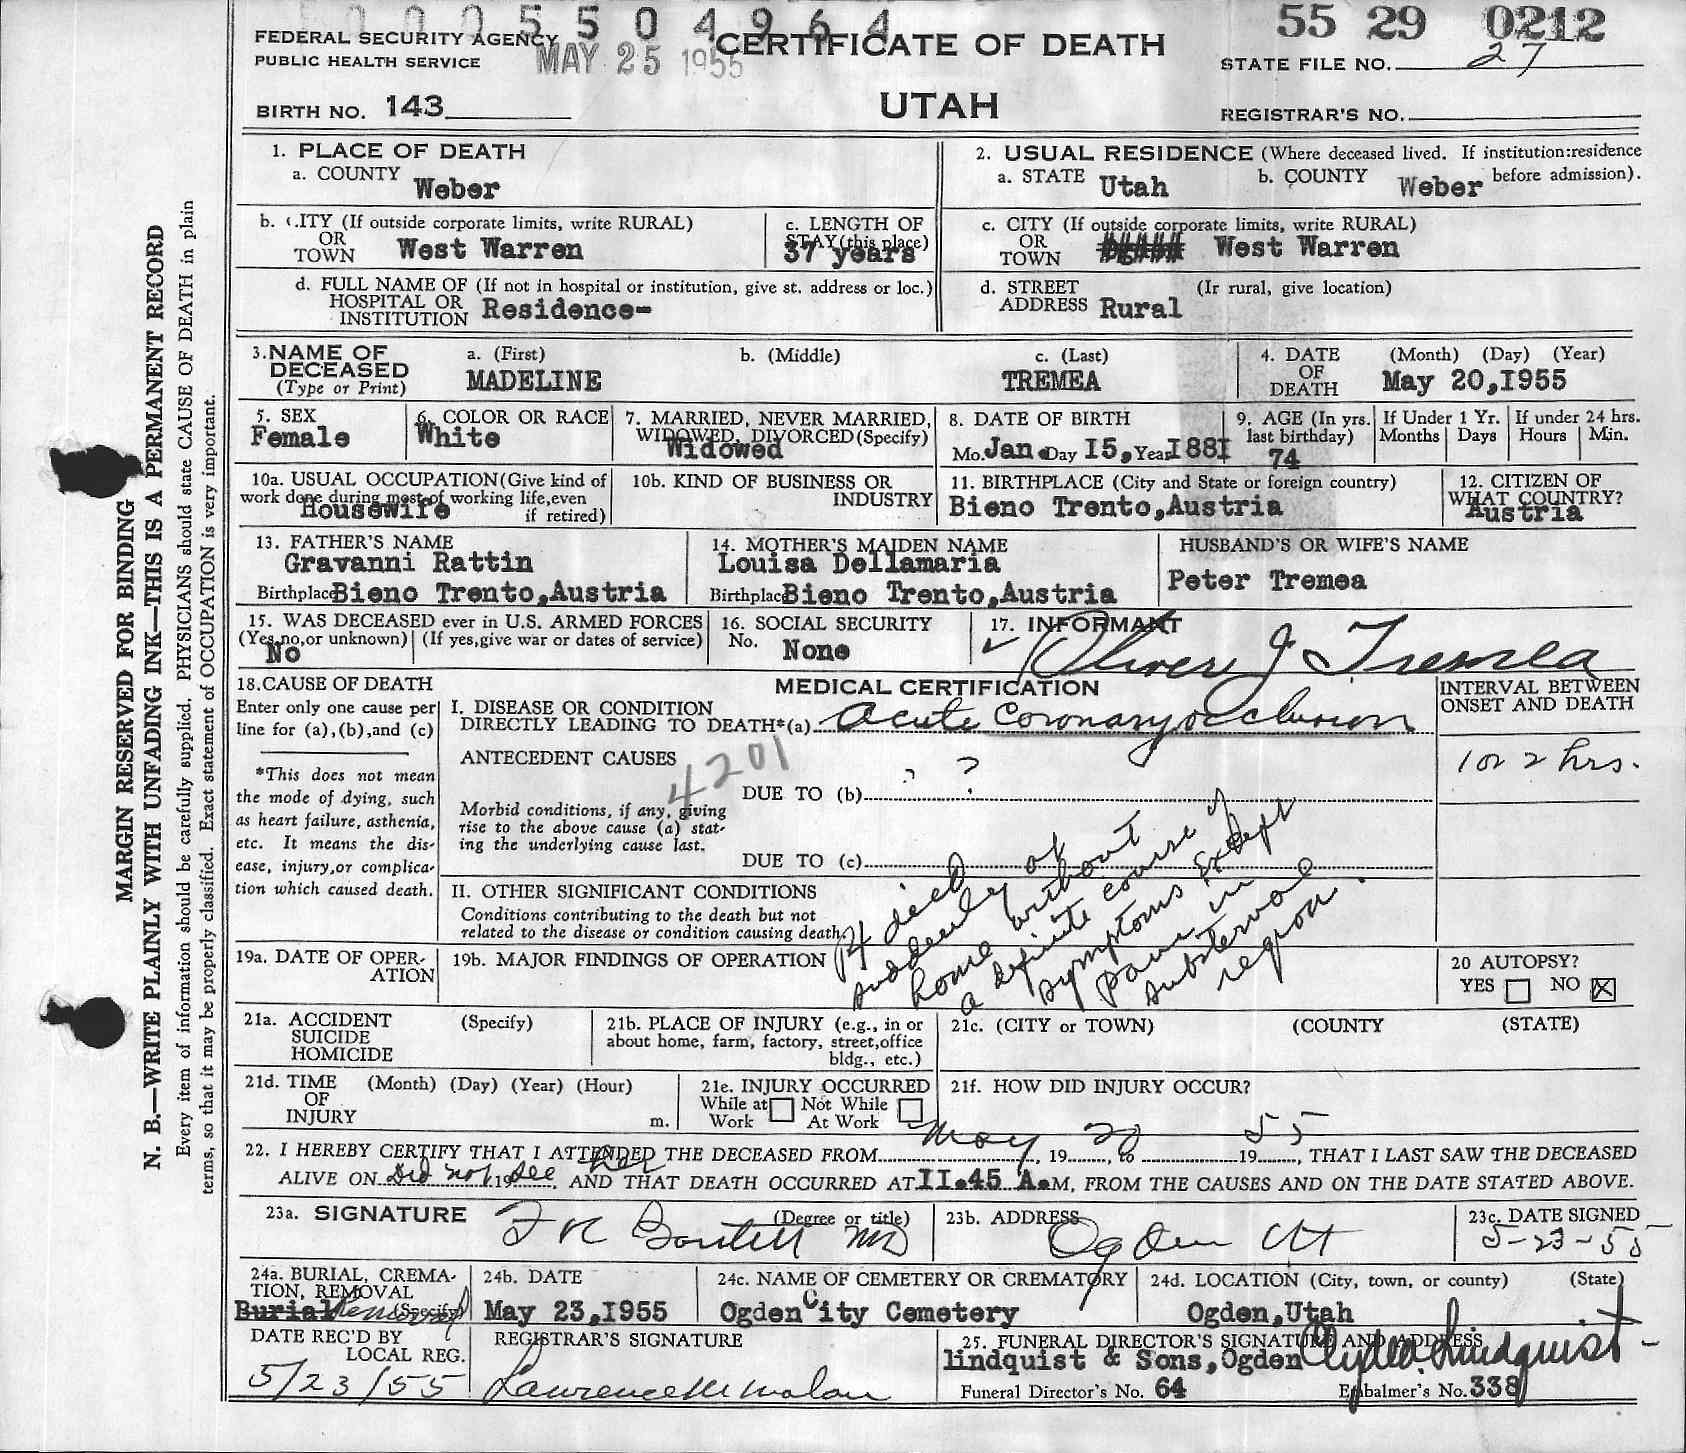 0005504964
FEDERAL SECURITY AGENCY
PUBLIC HEALTH SERVICE
MAY 25 1955
CERTIFICATE OF DEATH
55 29 0212
STATE FILE NO. 27
BIRTH NO. 143
UTAH
REGISTRAR'S NO.
MARGIN RESERVED FOR BINDING
N. B.—WRITE PLAINLY WITH UNFADING INK—THIS IS A PERMANENT RECORD
Every item of information should be carefully supplied. PHYSICIANS should state CAUSE OF DEATH in plain
terms, so that it may be properly classified. Exact statement of OCCUPATION is very important.
1. PLACE OF DEATH
a. COUNTY Weber
2. USUAL RESIDENCE (Where deceased lived. If institution:residence before admission).
a. STATE Utah b. COUNTY Weber
b. CITY (If outside corporate limits, write RURAL)
OR TOWN West Warren
c. LENGTH OF STAY (this place)
37 years
c. CITY (If outside corporate limits, write RURAL)
OR TOWN West Warren
d. FULL NAME OF (If not in hospital or institution, give st. address or loc.)
HOSPITAL OR INSTITUTION Residence-
d. STREET ADDRESS (Ir rural, give location)
Rural
3. NAME OF DECEASED (Type or Print)
a. (First) b. (Middle) c. (Last)
MADELINE TREMEA
4. DATE OF DEATH (Month) (Day) (Year)
May 20,1955
5. SEX
Female
6. COLOR OR RACE
White
7. MARRIED, NEVER MARRIED, WIDOWED, DIVORCED (Specify)
Widowed
8. DATE OF BIRTH
Mo. Jan. Day 15, Year 1881
9. AGE (In yrs. last birthday)
74
If Under 1 Yr. Months Days
If under 24 hrs. Hours Min.
10a. USUAL OCCUPATION (Give kind of work done during most of working life, even if retired)
Housewife
10b. KIND OF BUSINESS OR INDUSTRY
11. BIRTHPLACE (City and State or foreign country)
Bieno Trento,Austria
12. CITIZEN OF WHAT COUNTRY?
Austria
13. FATHER'S NAME
Gravanni Rattin
Birthplace Bieno Trento,Austria
14. MOTHER'S MAIDEN NAME
Louisa Dellamaria
Birthplace Bieno Trento,Austria
HUSBAND'S OR WIFE'S NAME
Peter Tremea
15. WAS DECEASED ever in U.S. ARMED FORCES
(Yes, no, or unknown) (If yes, give war or dates of service)
No
16. SOCIAL SECURITY No.
None
17. INFORMANT
Oliver J Tremea
18. CAUSE OF DEATH
Enter only one cause per line for (a), (b), and (c)
*This does not mean the mode of dying, such as heart failure, asthenia, etc. It means the disease, injury, or complication which caused death.
MEDICAL CERTIFICATION
INTERVAL BETWEEN ONSET AND DEATH
I. DISEASE OR CONDITION
DIRECTLY LEADING TO DEATH*(a) Acute Coronary occlusion
1 or 2 hrs.
ANTECEDENT CAUSES
4201
DUE TO (b) ? ?
Morbid conditions, if any, giving rise to the above cause (a) stating the underlying cause last.
DUE TO (c)
II. OTHER SIGNIFICANT CONDITIONS
Conditions contributing to the death but not related to the disease or condition causing death.
Pt died
suddenly at
home without
a definite course of
symptoms except
pain in
substernal
region.
19a. DATE OF OPERATION
19b. MAJOR FINDINGS OF OPERATION
20 AUTOPSY?
YES NO X
21a. ACCIDENT SUICIDE HOMICIDE (Specify)
21b. PLACE OF INJURY (e.g., in or about home, farm, factory, street, office bldg., etc.)
21c. (CITY or TOWN) (COUNTY (STATE)
21d. TIME OF INJURY (Month) (Day) (Year) (Hour) m.
21e. INJURY OCCURRED
While at Work Not While At Work
21f. HOW DID INJURY OCCUR?
May 20 55
22. I HEREBY CERTIFY THAT I ATTENDED THE DECEASED FROM , 19 , to 19 , THAT I LAST SAW THE DECEASED
ALIVE ON Did not 19 see her AND THAT DEATH OCCURRED AT II.45 A.M, FROM THE CAUSES AND ON THE DATE STATED ABOVE.
23a. SIGNATURE (Degree or title)
MD
23b. ADDRESS
Ogden Ut
23c. DATE SIGNED
5-23-55
24a. BURIAL, CREMATION, REMOVAL (Specify)
Burial Removal
24b. DATE
May 23,1955
24c. NAME OF CEMETERY OR CREMATORY
Ogden City Cemetery
24d. LOCATION (City, town, or county) (State)
Ogden,Utah
DATE REC'D BY LOCAL REG.
5/23/55
REGISTRAR'S SIGNATURE
Lawrence M Malan
25. FUNERAL DIRECTOR'S SIGNATURE AND ADDRESS
lindquist & Sons,Ogden Clyde Lindquist
Funeral Director's No. 64
Embalmer's No. 338